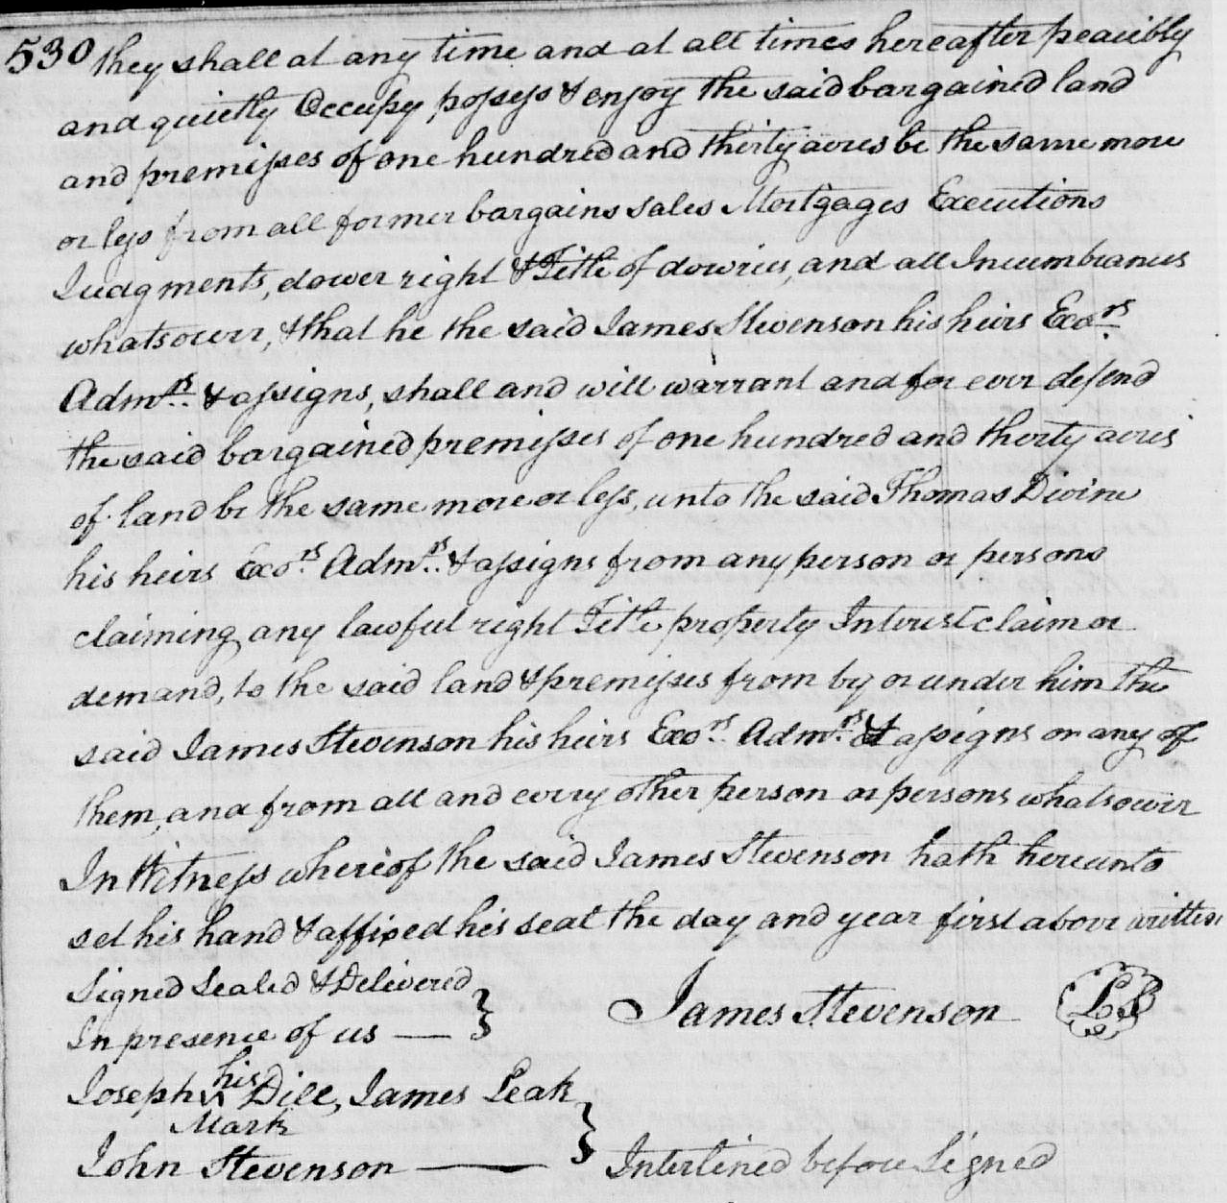 530 they shall at any time and at all times hereafter peacibly
and quietly Occupy, possess & enjoy the said bargained land
and premisses of one hundred and thirty acres be the same more
or less from all former bargains sales Mortgages Executions
Judgments, dower right & Title of dowries, and all Incumbrances
whatsoever, & that he the said James Stevenson his heirs Exo.rs
Adm.rs & assigns, shall and will warrant and for ever defend
the said bargained premisses of one hundred and thirty acres
of land be the same more or less, unto the said Thomas Divine
his heirs Exo.rs Adm.rs & assigns from any person or persons
claiming any lawful right Title property Interest claim or
demand, to the said land & premisses from by or under him the
said James Stevenson his heirs Exo.rs Adm.rs & assigns or any of
them, and from all and every other person or persons whatsoever
In Witness whereof the said James Stevenson hath hereunto
set his hand & affixed his seal the day and year first above written
Signed Sealed & Delivered
In presence of us — } James Stevenson LS
his
Joseph Dill, James Peak
Mark
John Stevenson — } Interlined before Signed